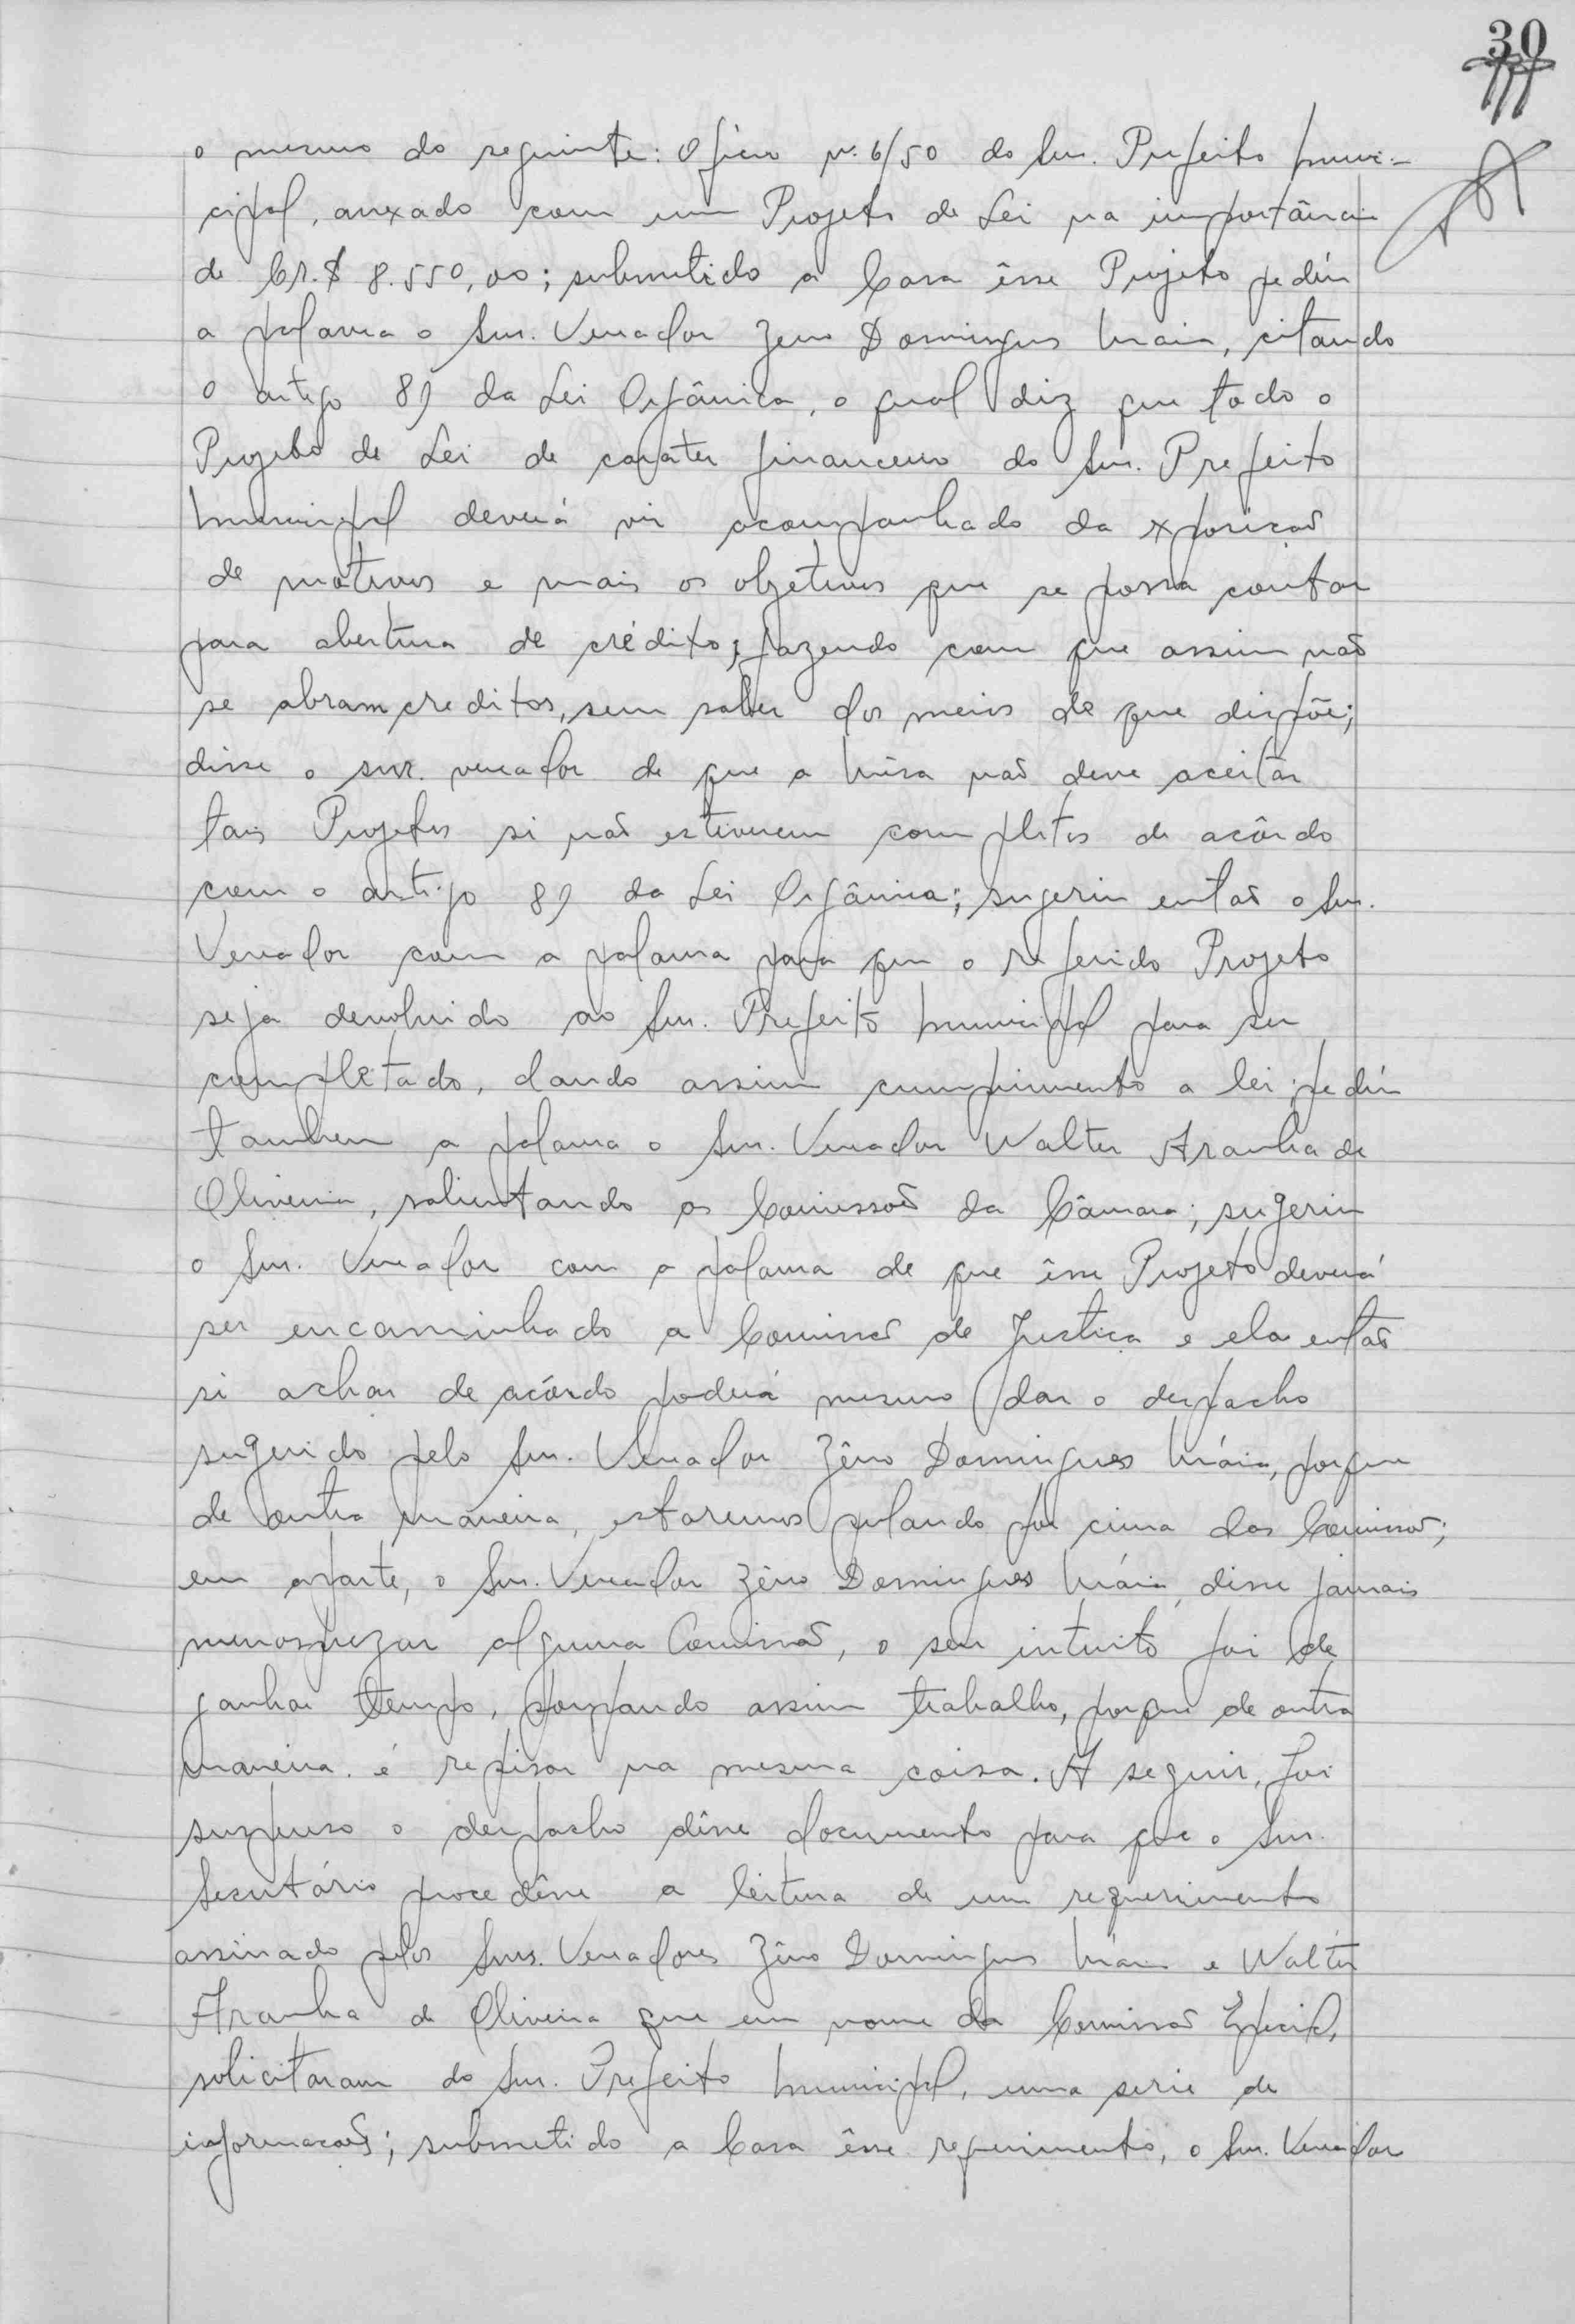 30
o mesmo do seguinte: Oficio n. 6/50 do Snr. Prefeito Muni-
cipal, anexado com um Projeto de Lei na importância
de Cr.$ 8.550,00; submetido a Casa êsse Projeto pediu
a palavra o Snr. Vereador Zeno Domingues Maia, citando
o artigo 89 da Lei Orgânica, o qual diz que todo o
Projeto de Lei de carater financeiro do Snr. Prefeito
Municipal deverá vir acompanhado da exposicão
de motivos e mais os objetivos que se possa contar
para abertura de crédito; fazendo com que assim não
se abram creditos, sem saber dos meios de que dispõe;
disse o snr. vereador de que a Mêsa não deve aceitar
tais Projetos si não estiverem completos de acôrdo
com o artigo 89 da Lei Orgânica; sugeriu então o Snr.
Vereador com a palavra para que o referido Projeto
seja devolvido ao Snr. Prefeito Municipal para ser
completado, dando assim cumprimento a lei; pediu
tambem a palavra o Snr. Vereador Walter Aranha de
Oliveira, salientando as Comissões da Câmara; sugeriu
o Snr. Vereador com a palavra de que êsse Projeto deverá
ser encaminhado a Comissão de Justica e ela então
si achar de acôrdo poderá mesmo dar o despacho
sugerido pelo Snr. Vereador Zêno Domingues Máia, porque
de outra maneira, estaremos pulando por cima das Comissões;
em aparte, o Snr. Vereador Zêno Domingues Máia, disse jamais
menosprezar alguma Comissão, o seu intuito foi de
ganhar tempo, poupando assim trabalho, porque de outra
maneira é repisar na mesma coisa. A seguir, foi
suspenso o despacho dêsse documento para que o Snr.
Secretário procedêsse a leitura de um requerimento
assinado pelos Snrs. Vereadores Zêno Domingues Maia e Walter
Aranha de Oliveira que em nome da Comissão Especial,
solicitaram do Snr. Prefeito Municipal, uma serie de
informacões; submetido a Casa êsse requerimento, o Snr. Vereador